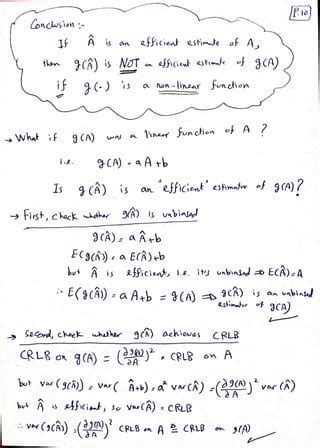 P.10
Conclusion :-
If Â is an efficient estimate of A,
then g(Â) is NOT an efficient estimate of g(A)
if g(·) is a non-linear function
→ What if g(A) was a linear function of A ?
i.e. g(A) = aA+b
Is g(Â) is an "efficient" estimator of g(A)?
→ First, check whether g(Â) is unbiased
g(Â) = a Â+b
E(g(Â)) = a E(Â)+b
but Â is efficient, i.e. its unbiased ⇒ E(Â)=A
∴ E(g(Â)) = a A+b = g(A) ⇒ g(Â) is an unbiased
estimator of g(A)
→ Second, check whether g(Â) achieves CRLB
CRLB on g(A) = (∂g(A)/∂A)² · CRLB on A
but var(g(Â)) = var( Â+b) = a² var(Â) = (∂g(A)/∂A)² var(Â)
but Â is efficient, so var(Â) = CRLB
∴ var(g(Â)) = (∂g(A)/∂A)² CRLB on A ≙ CRLB on g(A)